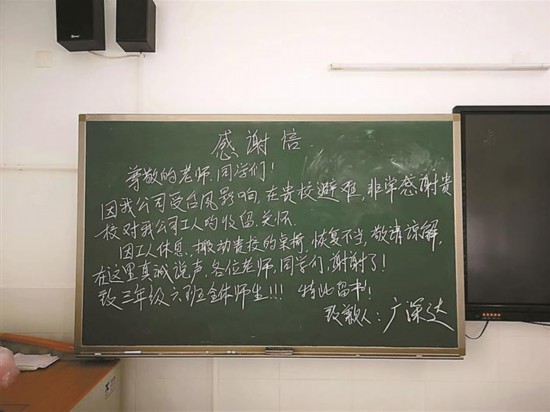 感谢信
尊敬的老师、同学们!
因我公司受台风影响,在贵校避难,非常感谢贵
校对我公司工人的收留、关怀.
因工人休息,搬动贵校的桌椅,恢复不当,敬请谅解,
在这里真诚说声,各位老师,同学们,谢谢了!
致三年级六班全体师生!!! 特此留书!
致敬人:广深达